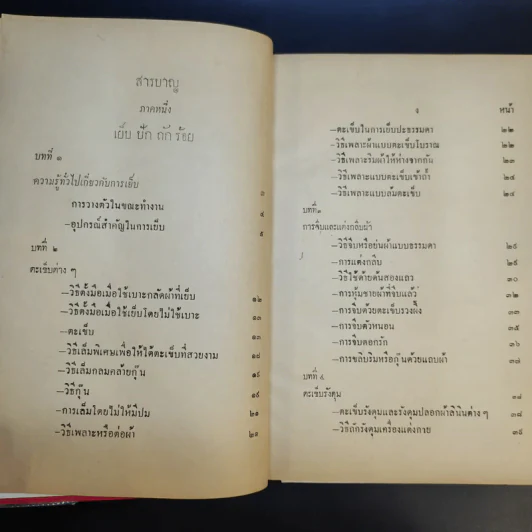 สารบาญ
ภาคหนึ่ง
เย็บ ปัก ถัก ร้อย
บทที่ ๑
ความรู้ทั่วไปเกี่ยวกับการเย็บ
การวางตัวในขณะทำงาน ๔
–อุปกรณ์สำคัญในการเย็บ ๕
บทที่ ๒
ตะเข็บต่าง ๆ
–วิธีตั้งมือเมื่อใช้เบาะกลัดผ้าที่เย็บ ๑๒
–วิธีตั้งมือเมื่อใช้เย็บโดยไม่ใช้เบาะ ๑๓
–ตะเข็บ ๑๓
–วิธีเล็มพิเศษเพื่อให้ได้ตะเข็บที่สวยงาม ๑๘
–วิธีเล็มกลมคล้ายกุ๊น ๑๙
–วิธีกุ๊น ๑๙
–การเล็มโดยไม่ให้มีปม ๒๑
–วิธีเพลาะหรือต่อผ้า ๒๑
ง หน้า
–ตะเข็บในการเย็บปะธรรมดา ๒๒
–วิธีเพลาะผ้าแบบตะเข็บโบราณ ๒๒
–วิธีเพลาะริมผ้าให้ห่างจากกัน ๒๓
–วิธีเพลาะแบบตะเข็บเข้าถ้ำ ๒๔
–วิธีเพลาะแบบล้มตะเข็บ ๒๔
บทที่๓
การจีบและแต่งกลีบผ้า
–วิธีจีบหรือย่นผ้าแบบธรรมดา ๒๙
–การแต่งกลีบ ๒๙
–วิธีใช้ด้ายด้นสองแถว ๓๐
–การหุ้มชายผ้าที่จีบแล้ว ๓๒
–การจีบด้วยตะเข็บรวงผึ้ง ๓๓
–การจีบตัวหนอน ๓๕
–การจีบดอกรัก ๓๖
–การขลิบริมหรือกุ๊นด้วยแถบผ้า ๓๗
บทที่ ๔
ตะเข็บรังดุม ๓๗
–ตะเข็บรังดุมและรังดุมปลอกผ้าลินินต่าง ๆ ๓๘
–วิธีถักรังดุมเครื่องแต่งกาย ๓๙